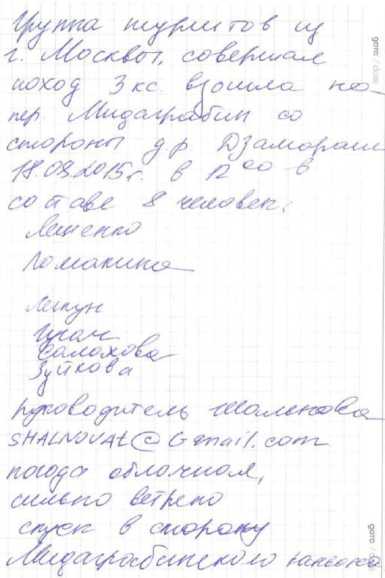 Группа туристов из
г. Москвы, совершая
поход 3 кс. взошла на
пер. Мидаграбин со
стороны др Дзамараш
18.08.2015г. в 12⁰⁰ в
составе 8 человек:
Лещенко
Ломакина
Ликун
Салахова
Зуйкова
руководитель Шаленова
SHALNOVAE@Gmail.com
погода облачная,
сильно ветрено
спуск в сторону
Мидаграбинского